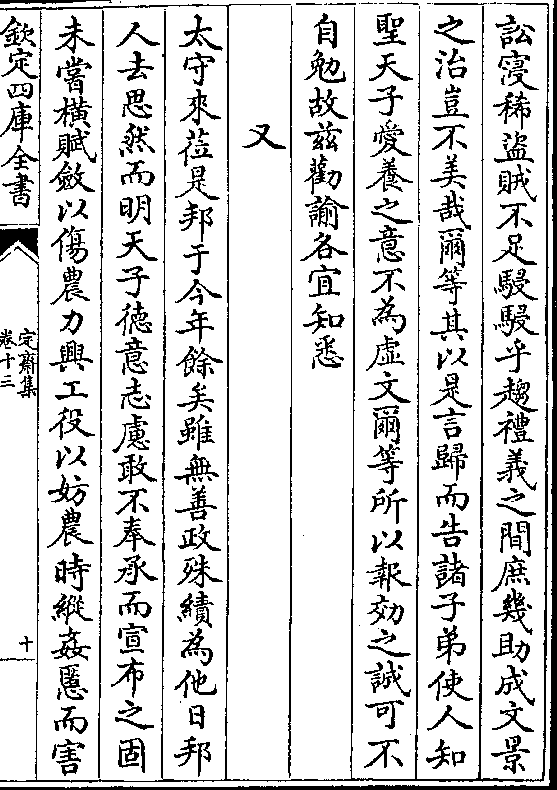 訟寖稀盜賊不足駸駸乎趨禮義之間庶幾助成文景
之治豈不美哉爾等其以是言歸而告諸子弟使人知
聖天子愛養之意不為虛文爾等所以報効之誠可不
自勉故茲勸諭各宜知悉
又
太守來莅是邦于今年餘矣雖無善政殊績為他日邦
人去思然而明天子徳意志慮敢不奉承而宣布之固
未嘗橫賦斂以傷農力興工役以妨農時縱姦慝而害
欽定四庫全書
定齋集
卷十三
十